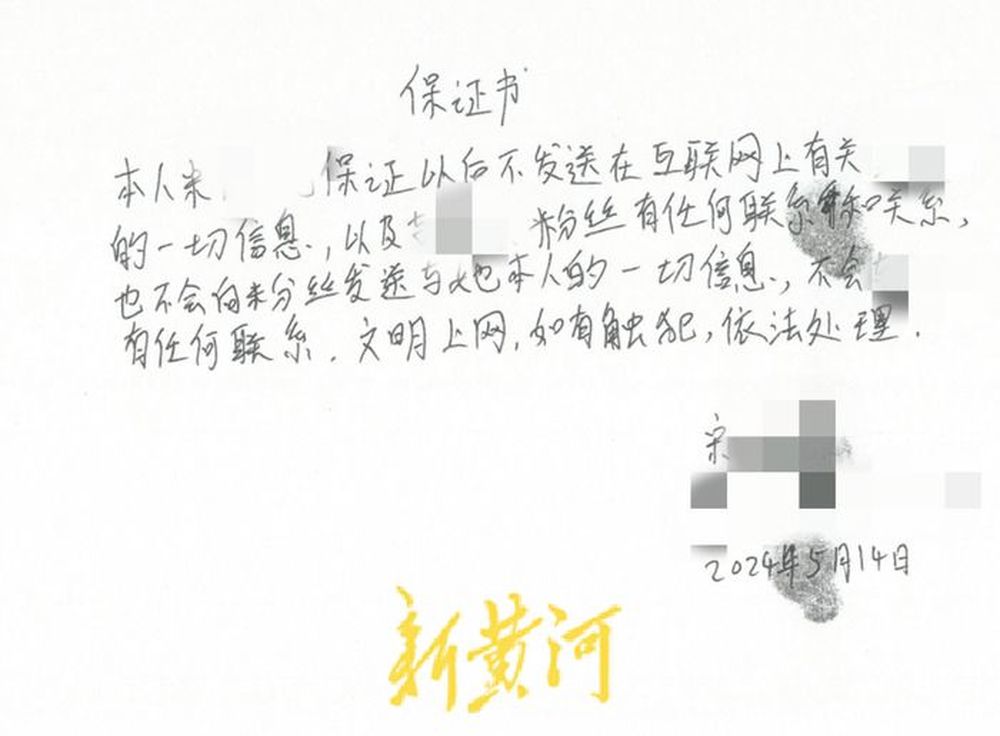 保证书
本人宋 保证以后不发送在互联网上有关
的一切信息,以及 粉丝有任何联系和联系,
也不会向粉丝发送与她本人的一切信息,不会
有任何联系.文明上网,如有触犯,依法处理.
宋
2024年5月14日
新黄河